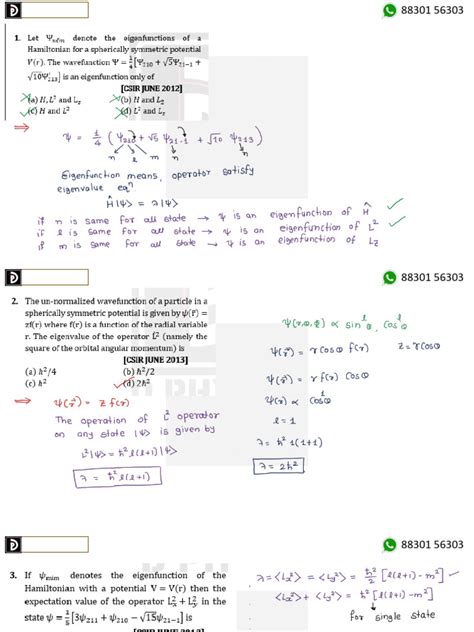 88301 56303
1. Let Ψnℓm denote the eigenfunctions of a
Hamiltonian for a spherically symmetric potential
V(r). The wavefunction Ψ = 1/4[Ψ210 + √5Ψ21−1 +
√10Ψ213] is an eigenfunction only of
[CSIR JUNE 2012]
(a) H, L² and Lz (b) H and Lz
(c) H and L² (d) L² and Lz
⇒ ψ = 1/4 ( ψ210 + √5 ψ21-1 + √10 ψ213 )
n l m n n
Eigenfunction means, operator satisfy
eigenvalue eqn
Ĥ|ψ> = λ|ψ>
if n is same for all state → ψ is an eigenfunction of Ĥ
if l is same for all state → ψ is an eigenfunction of L²
if m is same for all state → ψ is an eigenfunction of Lz
88301 56303
2. The un-normalized wavefunction of a particle in a
spherically symmetric potential is given by ψ(r⃗) =
zf(r) where f(r) is a function of the radial variable
r. The eigenvalue of the operator L⃗² (namely the
square of the orbital angular momentum) is
[CSIR JUNE 2013]
(a) ħ²/4 (b) ħ²/2
(c) ħ² (d) 2ħ²
⇒ ψ(r⃗) = z f(r)
The operation of L² operator
on any state |ψ> is given by
L²|ψ> = ħ² l(l+1)|ψ>
λ = ħ² l(l+1)
ψ(r,θ,φ) ∝ sin^l θ, cos^l θ
ψ(r⃗) = r cosθ f(r) z = r cosθ
ψ(r⃗) = r f(r) cosθ
ψ(r) ∝ cos^l θ
l = 1
λ = ħ² 1(1+1)
λ = 2ħ²
88301 56303
3. If ψnlm denotes the eigenfunction of the
Hamiltonian with a potential V = V(r) then the
expectation value of the operator L²x + L²y in the
state ψ = 1/5[3ψ211 + ψ210 − √15ψ21−1] is
[CSIR JUNE 2013]
λ = <Lx²> = <Ly²> = ħ²/2 [l(l+1) - m²]
<Lx²> + <Ly²> = ħ² [l(l+1) - m²]
for single state